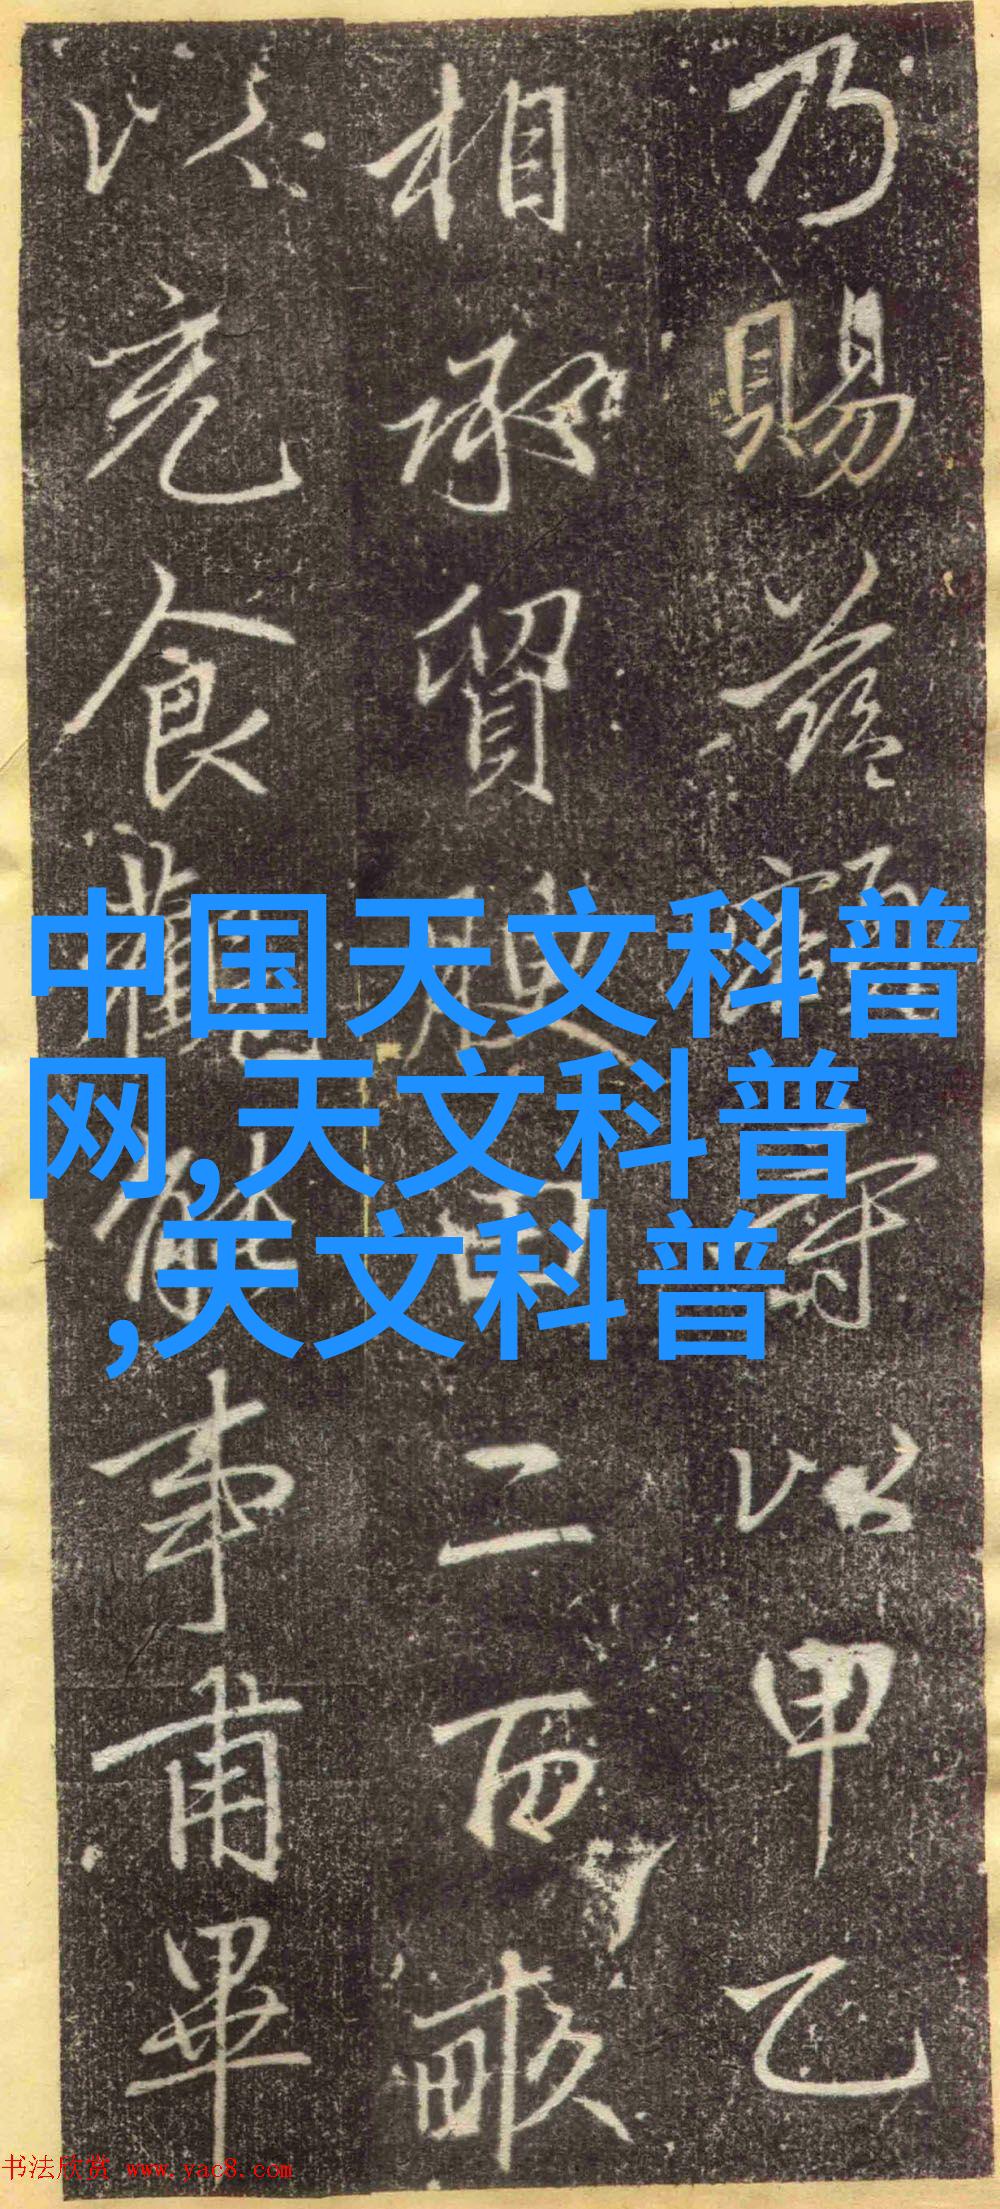 乃賜茲
以甲乙
相承貿
田二百畝
以充食
能事甫畢
中国天文科普
网,天文科普
,天文科普
书法欣赏 www.yac8.com